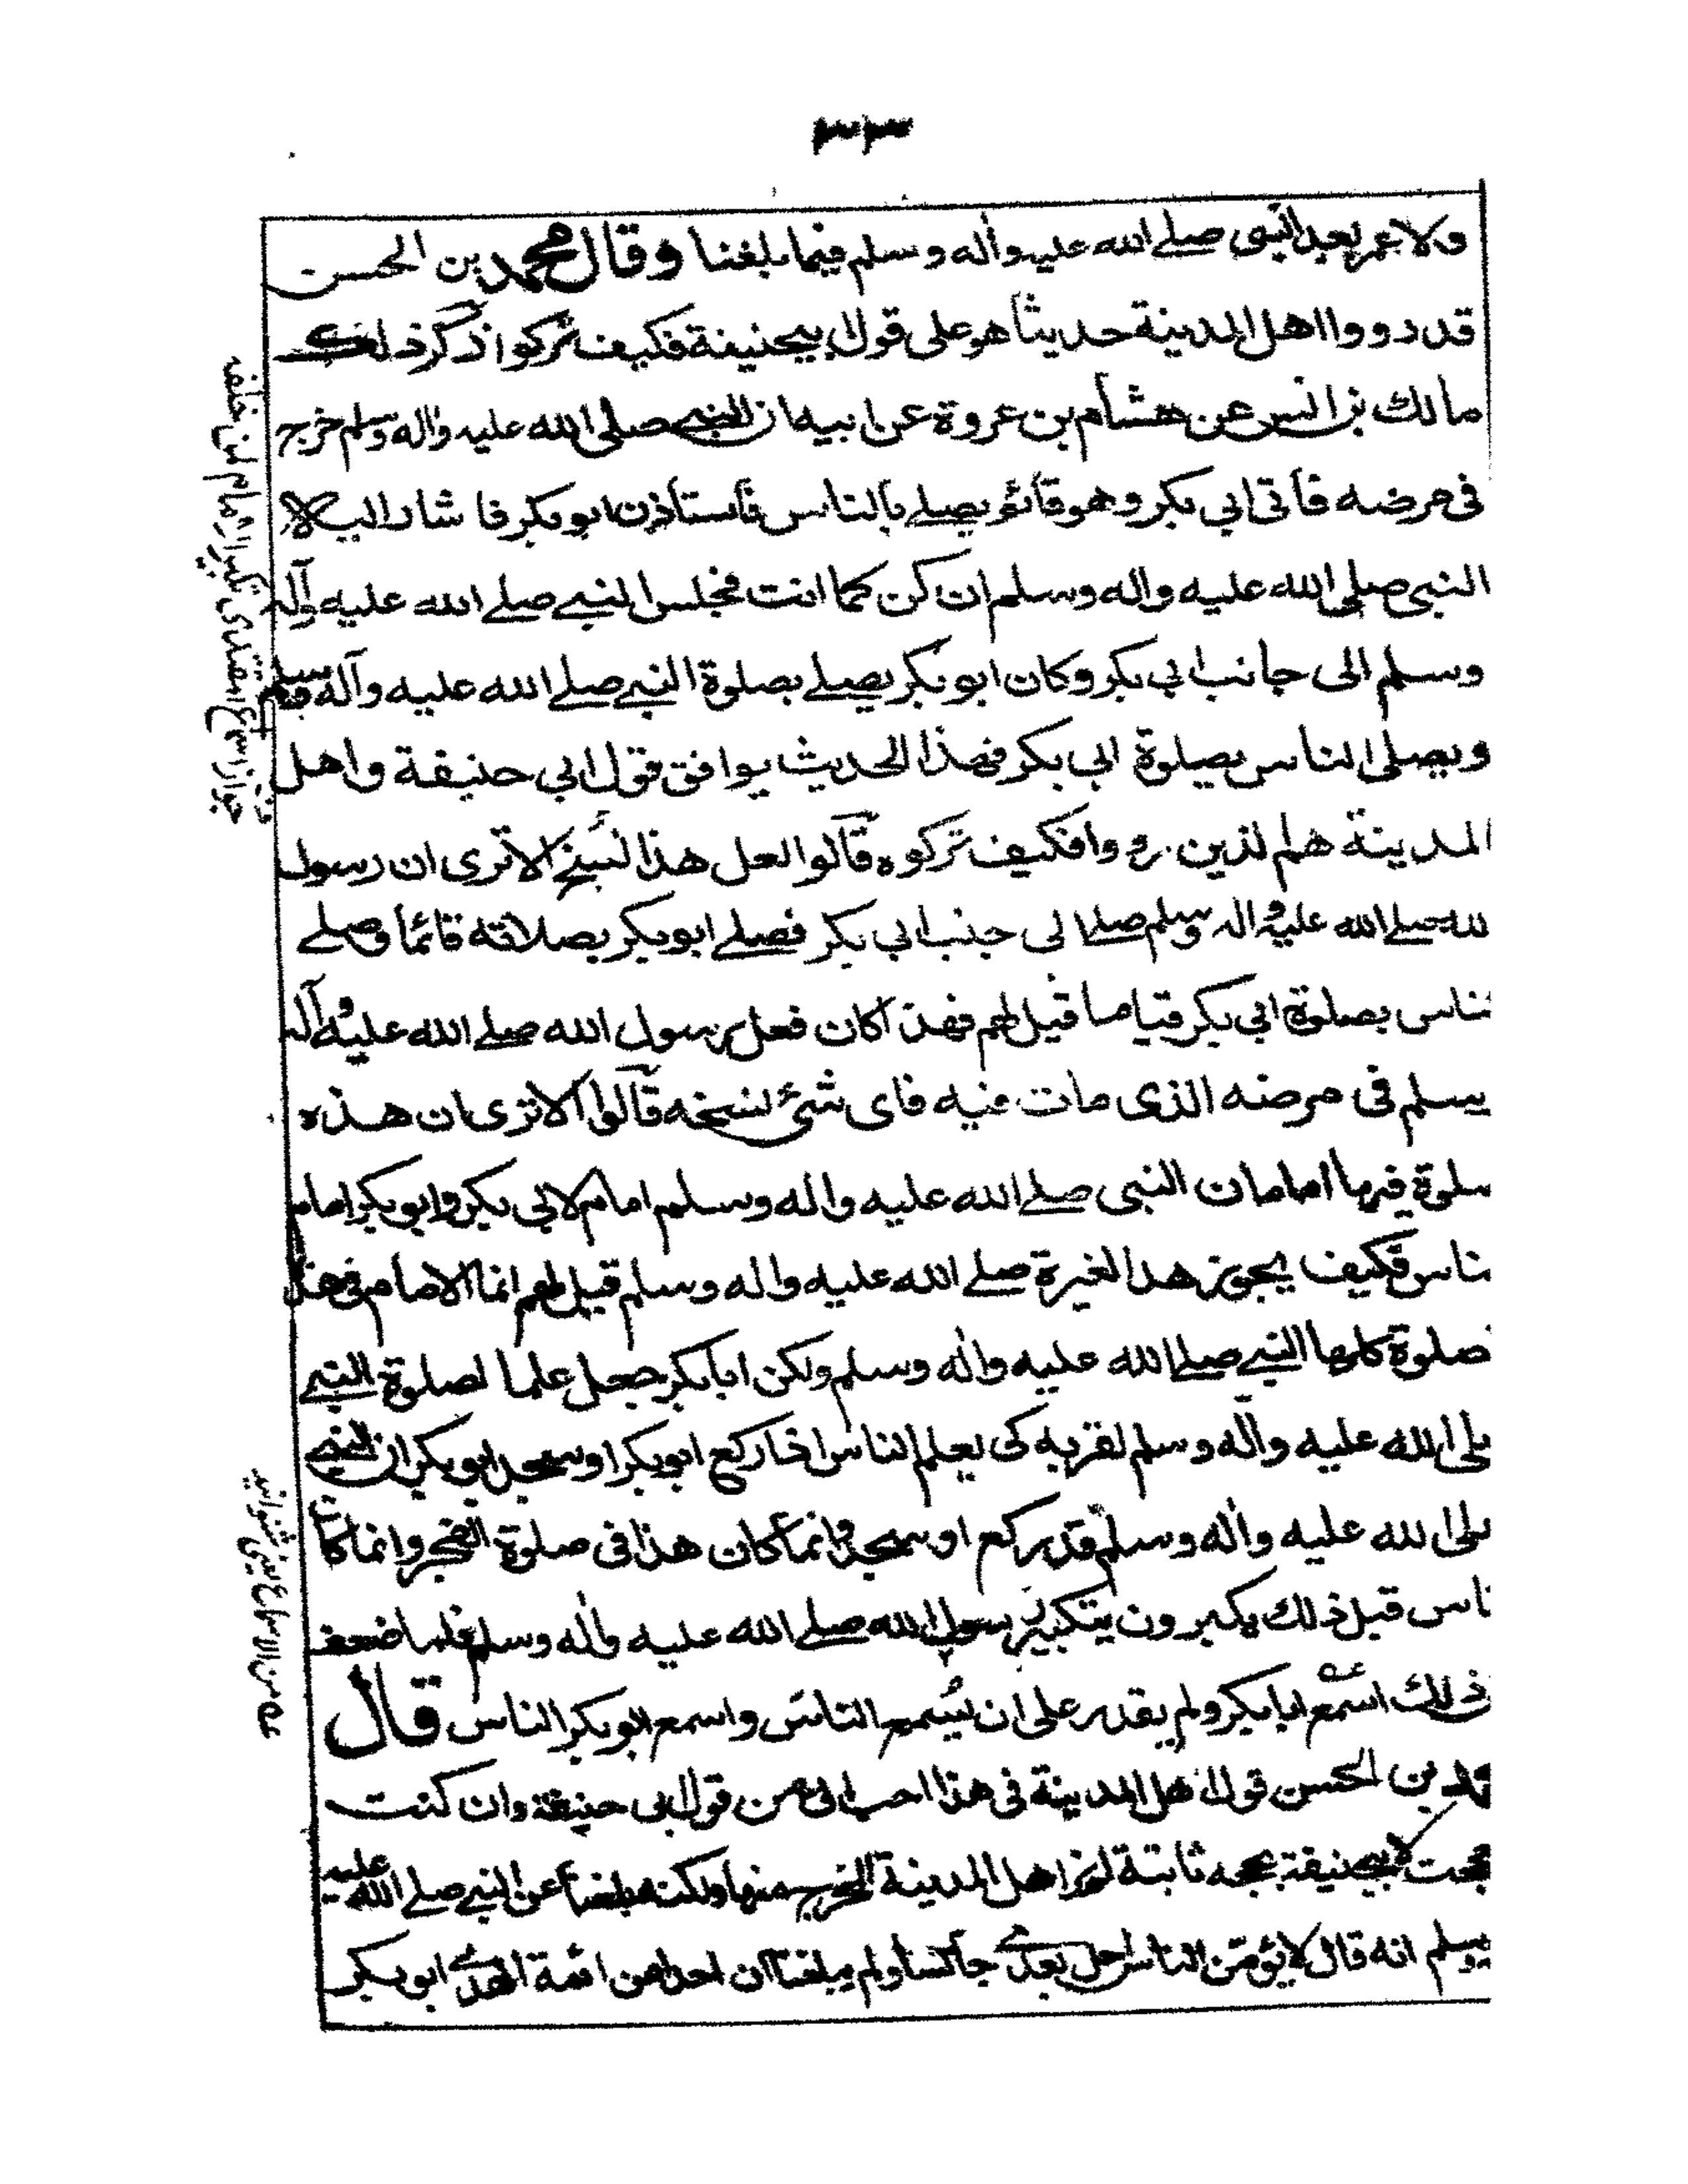 ٣٣
ولا عمر بعد النبى صلے الله عليه واٰله وسلم فيما بلغنا وقال محمد بن الحسن
قد رووا اهل المدينة حديثا هو على قول ابيحنيفة فكيف تركوا ذكر ذلك
مالك بن انس عن هشام بن عروة عن ابيه ان النبى صلى الله عليه واٰله وسلم خرج
فى مرضه فاتى ابي بكر وهو قائم يصلے بالناس فاستأذن ابو بكر فاشار اليه
النبى صلى الله عليه واله وسلم ان كن كما انت فجلس النبے صلے الله عليه وآله
وسلم الى جانب ابي بكر وكان ابو بكر يصلے بصلوة النبے صلے الله عليه وآله وسلم
ويصلى الناس بصلوة ابي بكر فهذا الحديث يوافق قول ابي حنيفة واهل
المدينة هم الذين رووا فكيف تركوه قالوا لعل هذا نسخ الا ترى ان رسول
لله صلے الله عليه واله وسلم صلے الى جنب ابي بكر فصلے ابو بكر بصلاته قائما وصلے
ناس بصلوة ابي بكر قياما قيل لهم فهذا كان فعل رسول الله صلے الله عليه وآله
يسلم فى مرضه الذى مات فيه فاى شئ نسخه قالوا الا ترى ان هذه
سلوة فيها امامان النبى صلے الله عليه واله وسلم امام لابي بكر وابو بكر امام
ناس فكيف يجوز هذا لغيره صلے الله عليه واله وسلم قيل لهم انما الامام فى هذا
صلوة كلها النبے صلے الله عليه واٰله وسلم ولكن ابا بكر جعل علما لصلوة النبے
لى الله عليه واٰله وسلم لقربه كى يعلم الناس اذا ركع ابو بكر او سجد ابو بكر ان النبے
لى الله عليه واٰله وسلم قد ركع او سجد وانما كان هذا فى صلوة الفجر وانما كان
ناس قبل ذلك يكبرون بتكبير رسول الله صلے الله عليه واٰله وسلم فلما ضعف
ذلك اسمع ابا بكر ولم يقدر على ان يُسمع الناس واسمع ابو بكر الناس قال
مد بن الحسن قول اهل المدينة فى هذا احب الى من قول ابى حنيفة وان كنت
حججت لابيحنيفة بحجه ثابتة اهل المدينة المخرج منها ولكنه بلغنا عن النبے صلے الله عليه
وسلم انه قال لا يؤمّن الناس احد بعدے جالسا ولم يبلغنا ان احدا من ائمة الهدے ابو بكر
جواز اسماع المقتدى تكبير الامام لمن خلفه
عه من الاسماع